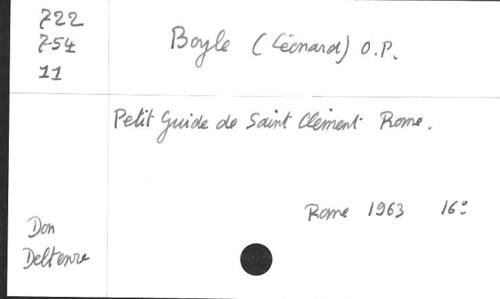 722
754
11
Boyle (Léonard) O.P.
Petit Guide de Saint Clément Rome.
Rome 1963 16º
Don
Deltenre